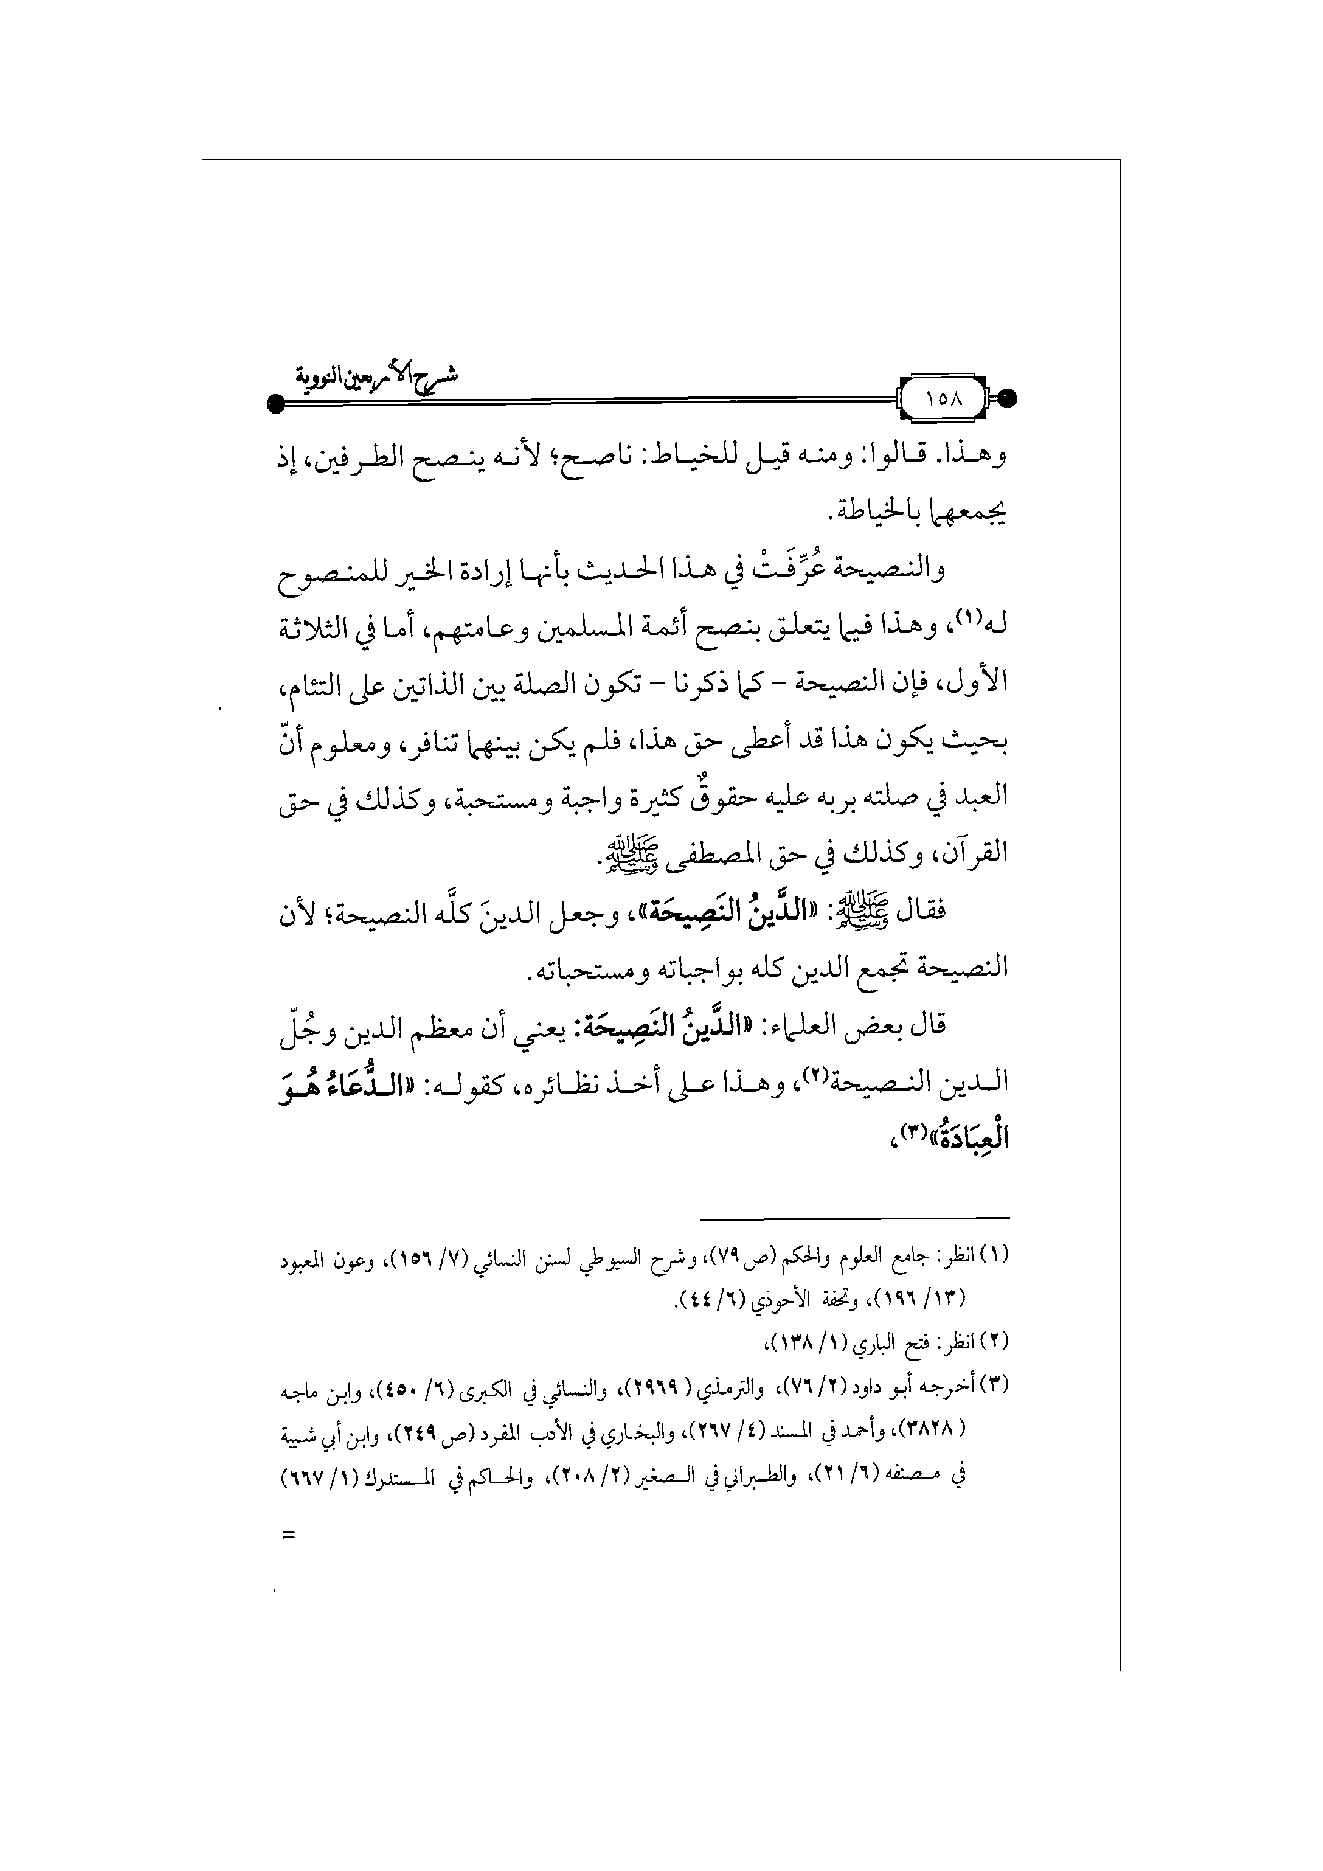 شرح الأربعين النووية
١٥٨
وهذا. قالوا: ومنه قيل للخياط: ناصح؛ لأنه ينصح الطرفين، إذ
يجمعهما بالخياطة.
والنصيحة عُرِّفَتْ في هذا الحديث بأنها إرادة الخير للمنصوح
له(١)، وهذا فيما يتعلق بنصح أئمة المسلمين وعامتهم، أما في الثلاثة
الأول، فإن النصيحة - كما ذكرنا - تكون الصلة بين الذاتين على التئام،
بحيث يكون هذا قد أعطى حق هذا، فلم يكن بينهما تنافر، ومعلوم أنّ
العبد في صلته بربه عليه حقوقٌ كثيرة واجبة ومستحبة، وكذلك في حق
القرآن، وكذلك في حق المصطفى ﷺ.
فقال ﷺ: «الدَّينُ النَصِيحَة»، وجعل الدينَ كلَّه النصيحة؛ لأن
النصيحة تجمع الدين كله بواجباته ومستحباته.
قال بعض العلماء: «الدَّينُ النَصِيحَة: يعني أن معظم الدين وجُلّ
الدين النصيحة(٢)، وهذا على أخذ نظائره، كقوله: «الدُّعَاءُ هُوَ
الْعِبَادَةُ»(٣)،
(١) انظر: جامع العلوم والحكم (ص٧٩)، وشرح السيوطي لسنن النسائي (٧/ ١٥٦)، وعون المعبود
(١٣/ ١٩٦)، وتحفة الأحوذي (٦/ ٤٤).
(٢) انظر: فتح الباري (١/ ١٣٨)،
(٣) أخرجه أبو داود (٢/ ٧٦)، والترمذي (٢٩٦٩)، والنسائي في الكبرى (٦/ ٤٥٠)، وابن ماجه
(٣٨٢٨)، وأحمد في المسند (٤/ ٢٦٧)، والبخاري في الأدب المفرد (ص٢٤٩)، وابن أبي شيبة
في مصنفه (٦/ ٢١)، والطبراني في الصغير (٢/ ٢٠٨)، والحاكم في المستدرك (١/ ٦٦٧)
=